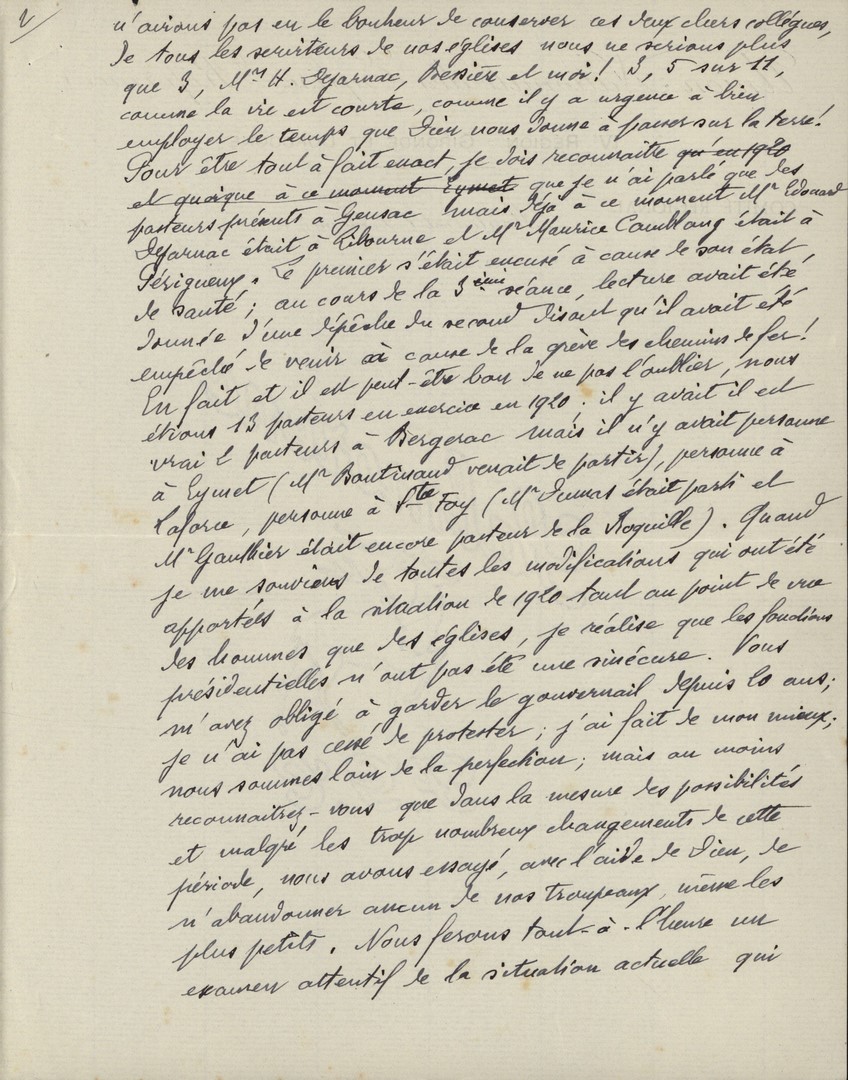 2/
n'avions pas eu le bonheur de conserver ces deux chers collègues,
de tous les serviteurs de nos églises nous ne serions plus
que 3, Mrs H. Dejarnac, Bessière et moi! 3, 5 sur 11,
comme la vie est courte, comme il y a urgence à bien
employer le temps que Dieu nous donne à passer sur la terre!
Pour être tout à fait exact, je dois reconnaître qu'en 1920
et quoique à ce moment Eymet que je n'ai parlé que des
pasteurs présents à Gensac mais déjà à ce moment Mr Edouard
Dejarnac était à Libourne et Mr Maurice Camblong était à
Périgueux. Le premier s'était excusé à cause de son état
de santé; au cours de la 3ème séance, lecture avait été
donnée d'une dépêche du second disant qu'il avait été
empêché de venir à cause de la grève des chemins de fer!
En fait et il est peut-être bon de ne pas l'oublier, nous
étions 13 pasteurs en exercice en 1920; il y avait il est
vrai 2 pasteurs à Bergerac mais il n'y avait personne
à Eymet (Mr Boutinaud venait de partir), personne à
Laforce, personne à Ste Foy (Mr Dumas était parti et
Mr Gauthier était encore pasteur de la Roquille). Quand
je me souviens de toutes les modifications qui ont été
apportées à la situation de 1920 tant au point de vue
des hommes que des églises, je réalise que les fonctions
présidentielles n'ont pas été une sinécure. Vous
m'avez obligé à garder le gouvernail depuis 20 ans;
je n'ai pas cessé de protester; j'ai fait de mon mieux;
nous sommes loin de la perfection; mais au moins
reconnaitrez-vous que dans la mesure des possibilités
et malgré les trop nombreux changements de cette
période, nous avons essayé, avec l'aide de Dieu, de
n'abandonner aucun de nos troupeaux, même les
plus petits. Nous ferons tout-à-l'heure un
examen attentif de la situation actuelle qui